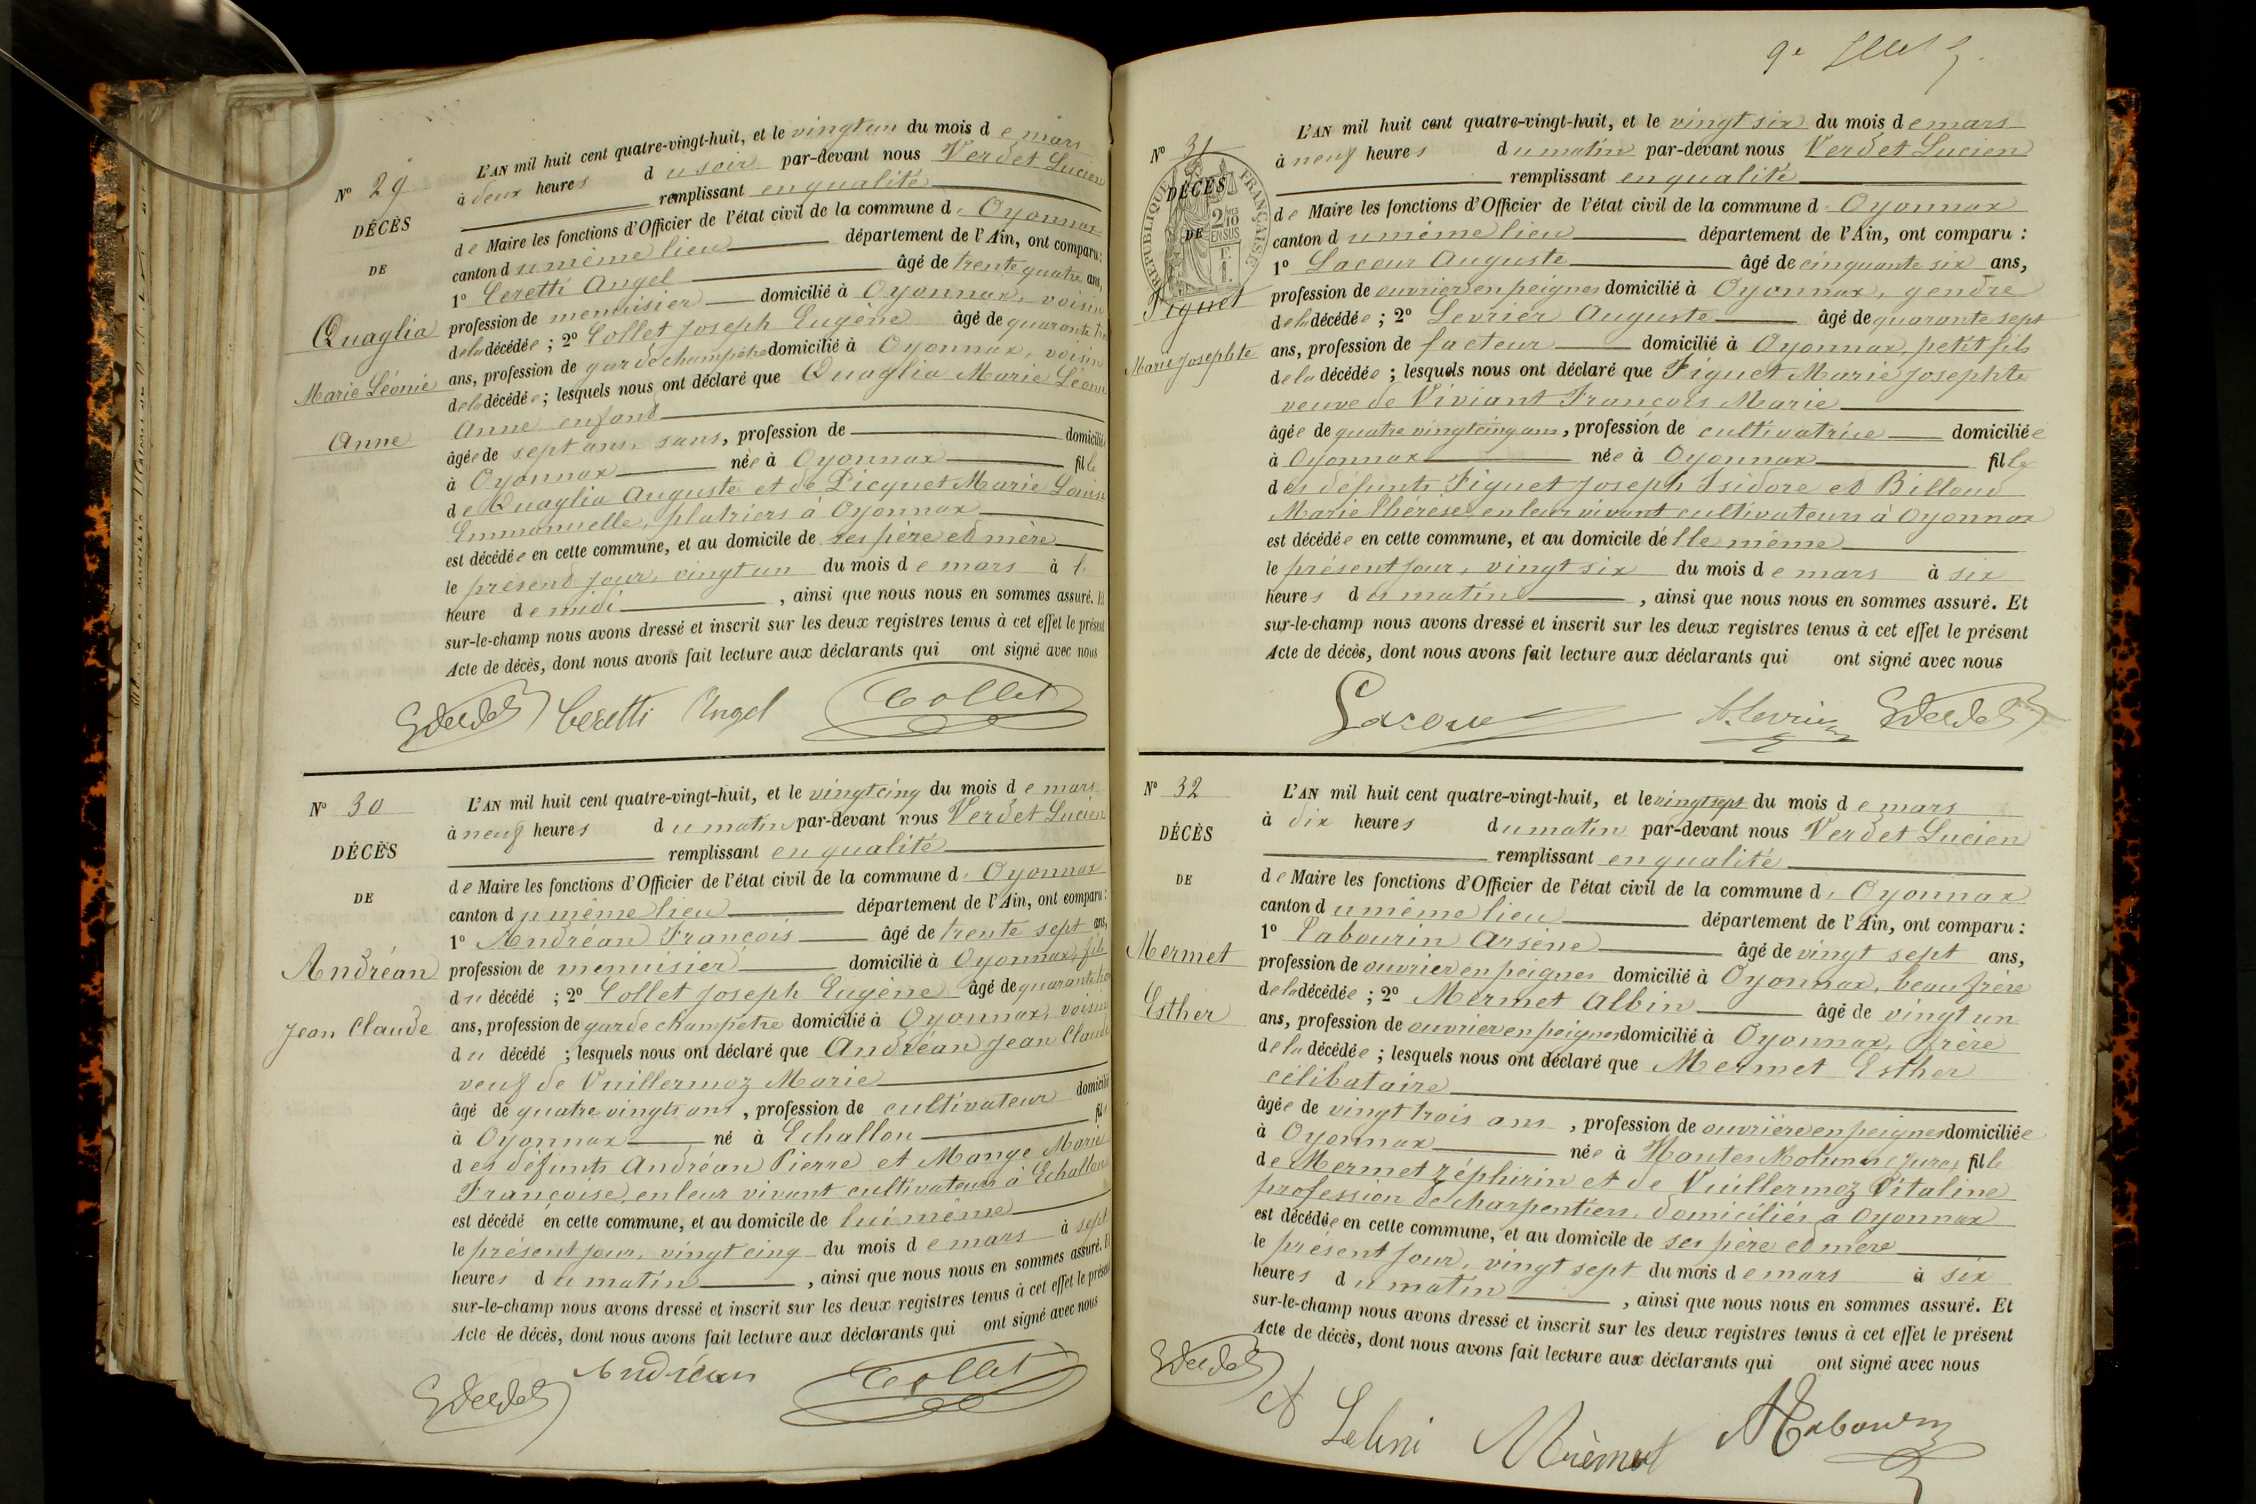 N° 29
DÉCÈS
DE
Quaglia
Marie Léonie
Anne
L'AN mil huit cent quatre-vingt-huit, et le vingt un du mois de mars
à deux heures du soir par-devant nous Verdet Lucien
remplissant en qualité
de Maire les fonctions d'Officier de l'état civil de la commune d'Oyonnax
canton du même lieu département de l'Ain, ont comparu :
1° Ceretti Angel âgé de trente quatre ans,
profession de menuisier domicilié à Oyonnax, voisin
de la décédée ; 2° Collet Joseph Eugène âgé de quarante
ans, profession de garde champêtre domicilié à Oyonnax, voisin
de la décédée ; lesquels nous ont déclaré que Quaglia Marie Léonie
Anne enfant
âgée de sept ans, sans, profession de domiciliée
à Oyonnax née à Oyonnax fille
de Quaglia Auguste et de Picquet Marie Louise
Emmanuelle, platriers à Oyonnax
est décédée en cette commune, et au domicile de ses père et mère
le présent jour, vingt un du mois de mars à l'
heure de midi, ainsi que nous nous en sommes assuré. Et
sur-le-champ nous avons dressé et inscrit sur les deux registres tenus à cet effet le présent
Acte de décès, dont nous avons fait lecture aux déclarants qui ont signé avec nous
Ceretti Angel Collet
N° 30
DÉCÈS
DE
Andréan
Jean Claude
L'AN mil huit cent quatre-vingt-huit, et le vingt cinq du mois de mars
à neuf heures du matin par-devant nous Verdet Lucien
remplissant en qualité
de Maire les fonctions d'Officier de l'état civil de la commune d'Oyonnax
canton du même lieu département de l'Ain, ont comparu :
1° Andréan François âgé de trente sept ans,
profession de menuisier domicilié à Oyonnax, fils
du décédé ; 2° Collet Joseph Eugène âgé de quarante
ans, profession de garde champêtre domicilié à Oyonnax, voisin
du décédé ; lesquels nous ont déclaré que Andréan Jean Claude
veuf de Vuillermoz Marie
âgé de quatre vingts ans, profession de cultivateur domicilié
à Oyonnax né à Echallon fils
des défunts Andréan Pierre et Mange Marie
Françoise, en leur vivant cultivateurs à Echallon
est décédé en cette commune, et au domicile de lui même
le présent jour, vingt cinq du mois de mars à sept
heures du matin, ainsi que nous nous en sommes assuré. Et
sur-le-champ nous avons dressé et inscrit sur les deux registres tenus à cet effet le présent
Acte de décès, dont nous avons fait lecture aux déclarants qui ont signé avec nous
Andréan Collet
9e
N° 31
DÉCÈS
DE
RÉPUBLIQUE FRANÇAISE
EN SUS
Piguet
Marie Josephte
L'AN mil huit cent quatre-vingt-huit, et le vingt six du mois de mars
à neuf heures du matin par-devant nous Verdet Lucien
remplissant en qualité
de Maire les fonctions d'Officier de l'état civil de la commune d'Oyonnax
canton du même lieu département de l'Ain, ont comparu :
1° Lacour Auguste âgé de cinquante six ans,
profession de ouvrier en peignes domicilié à Oyonnax, gendre
de la décédée ; 2° Levrier Auguste âgé de quarante sept
ans, profession de facteur domicilié à Oyonnax, petit fils
de la décédée ; lesquels nous ont déclaré que Piguet Marie Josephte
veuve de Viviant François Marie
âgée de quatre vingt cinq ans, profession de cultivatrice domiciliée
à Oyonnax née à Oyonnax fille
des défunts Piguet Joseph Isidore et Billoud
Marie Thérèse, en leur vivant cultivateurs à Oyonnax
est décédée en cette commune, et au domicile d'elle même
le présent jour, vingt six du mois de mars à six
heures du matin, ainsi que nous nous en sommes assuré. Et
sur-le-champ nous avons dressé et inscrit sur les deux registres tenus à cet effet le présent
Acte de décès, dont nous avons fait lecture aux déclarants qui ont signé avec nous
Lacour A. Levrier
N° 32
DÉCÈS
DE
Mermet
Esther
L'AN mil huit cent quatre-vingt-huit, et le vingt sept du mois de mars
à dix heures du matin par-devant nous Verdet Lucien
remplissant en qualité
de Maire les fonctions d'Officier de l'état civil de la commune d'Oyonnax
canton du même lieu département de l'Ain, ont comparu :
1° Tabourin Arsène âgé de vingt sept ans,
profession de ouvrier en peignes domicilié à Oyonnax, beau frère
de la décédée ; 2° Mermet Albin âgé de vingt un
ans, profession de ouvrier en peignes domicilié à Oyonnax, frère
de la décédée ; lesquels nous ont déclaré que Mermet Esther
célibataire
âgée de vingt trois ans, profession de ouvrière en peignes domiciliée
à Oyonnax née à Hautes Molunes Jura, fille
de Mermet Zéphirin et de Vuillermoz Vitaline
profession de charpentiers, domiciliés à Oyonnax
est décédée en cette commune, et au domicile de ses père et mère
le présent jour, vingt sept du mois de mars à six
heures du matin, ainsi que nous nous en sommes assuré. Et
sur-le-champ nous avons dressé et inscrit sur les deux registres tenus à cet effet le présent
Acte de décès, dont nous avons fait lecture aux déclarants qui ont signé avec nous
Tabourin